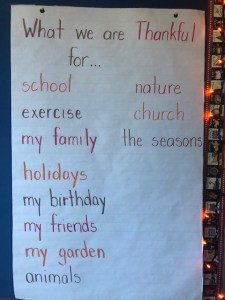 What we are Thankful
for...
school
exercise
my family
holidays
my birthday
my friends
my garden
animals
nature
church
the seasons